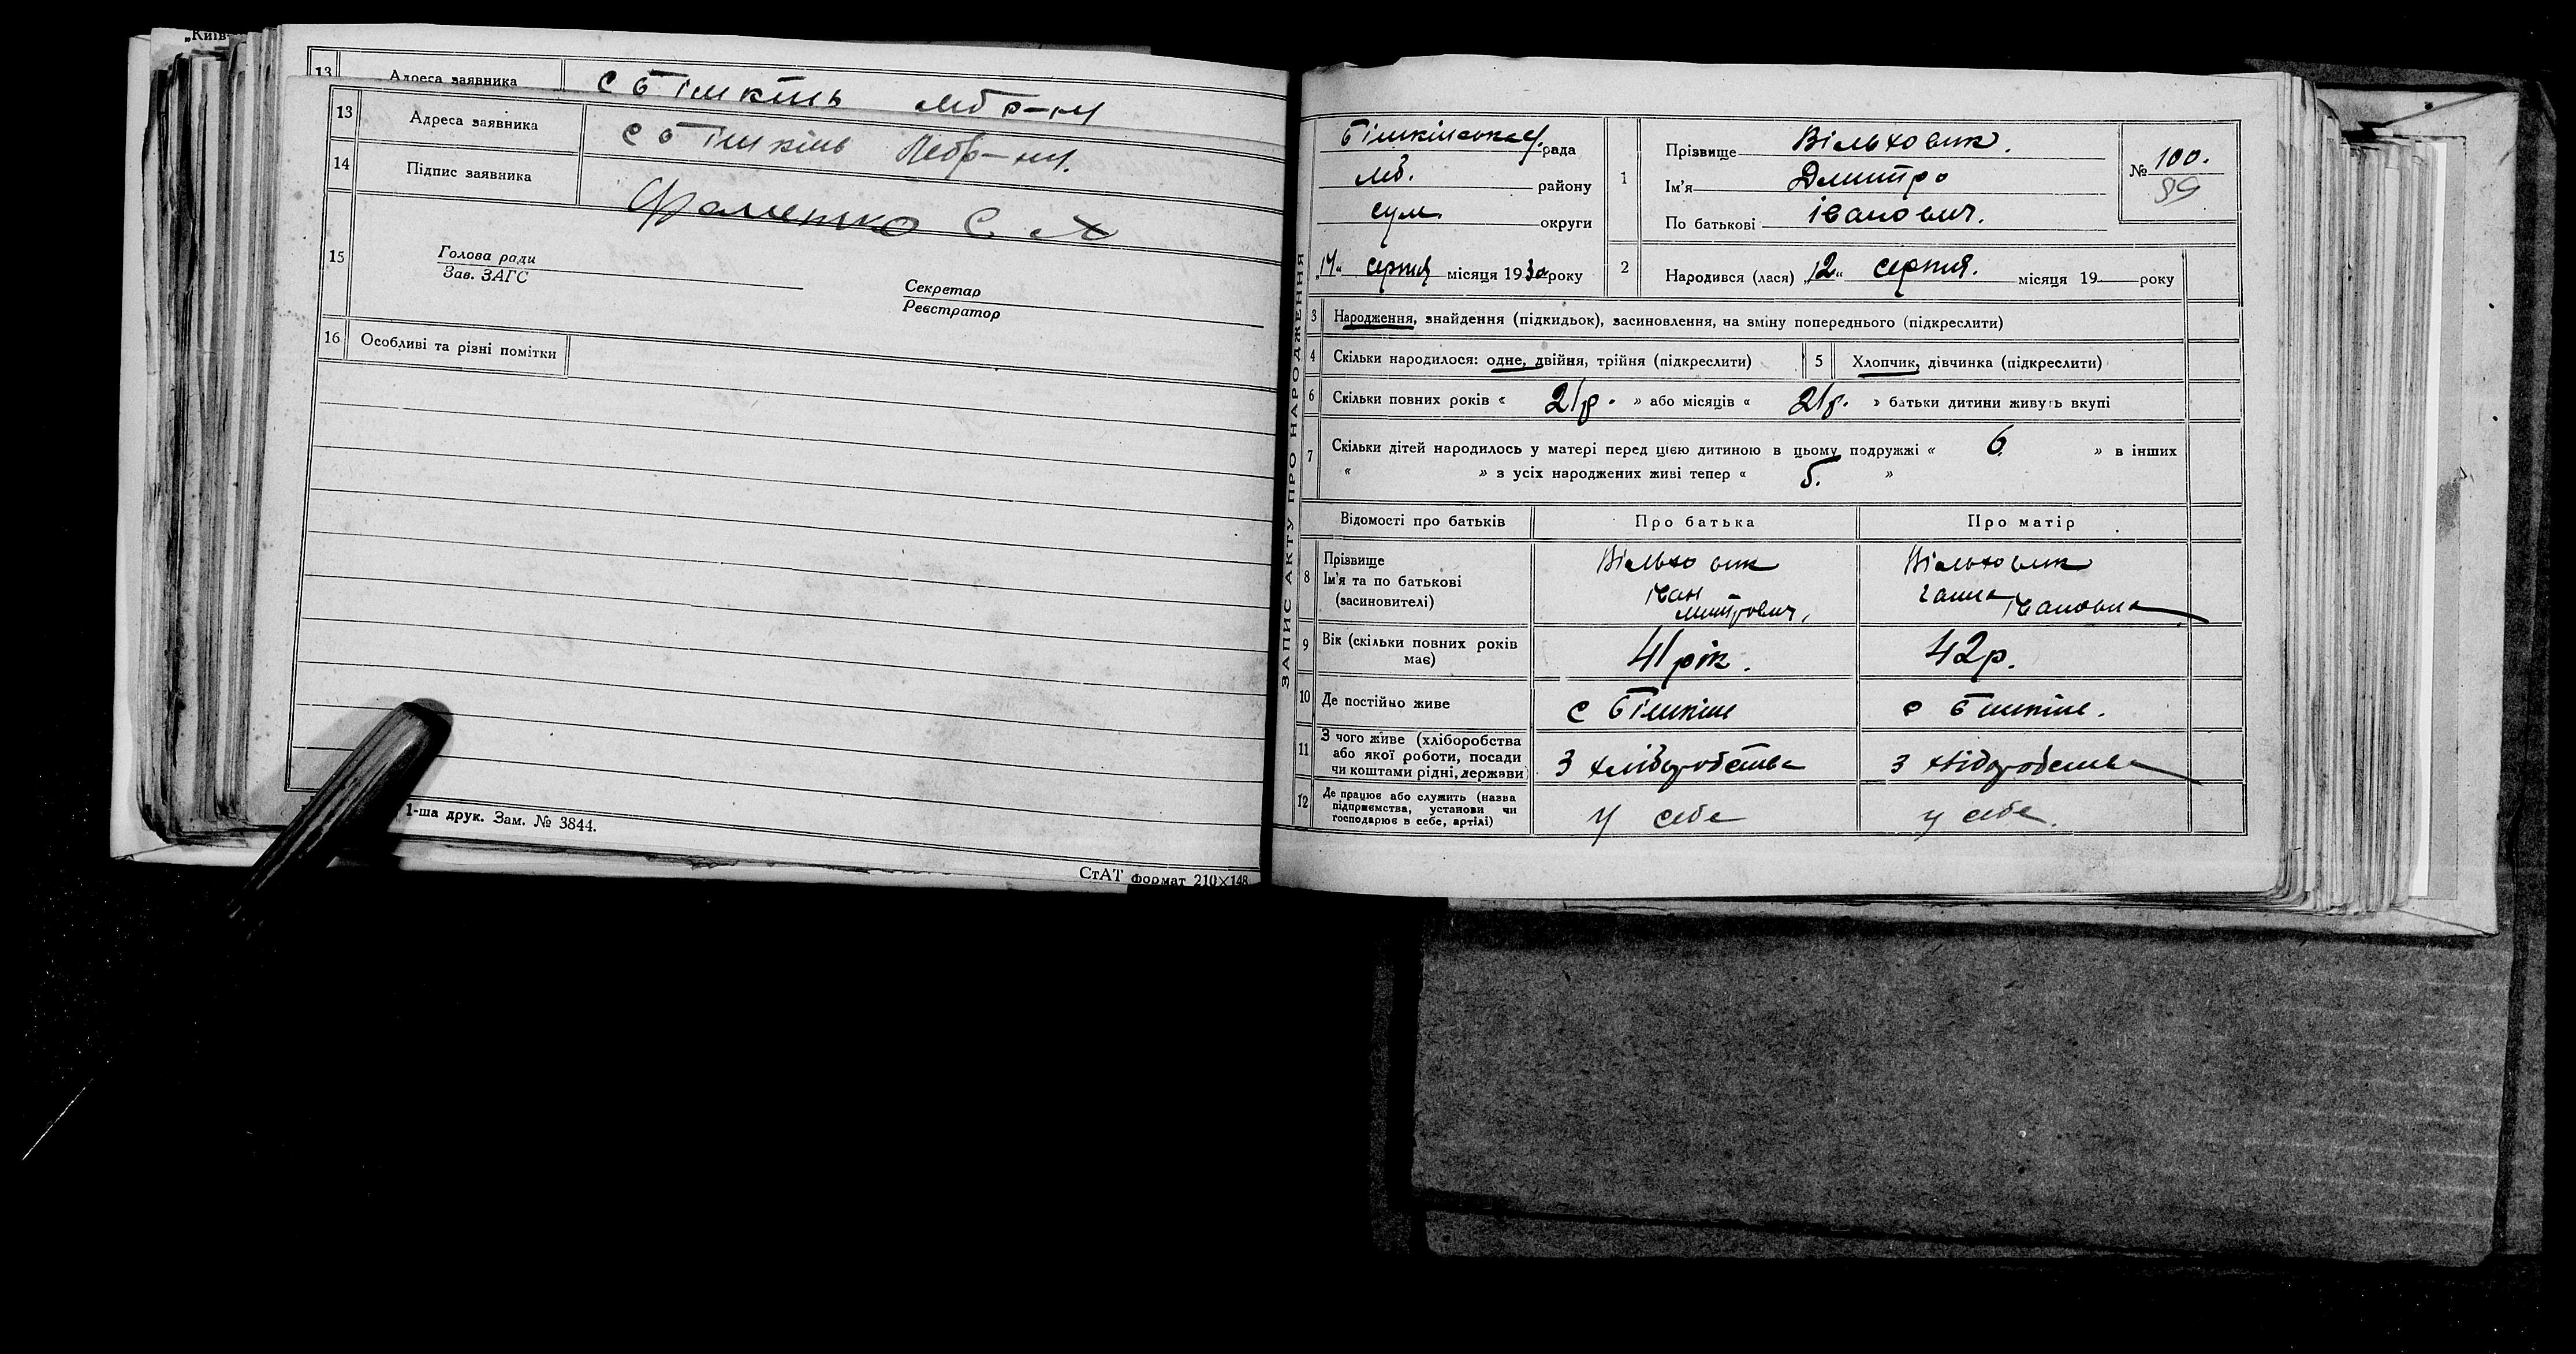 „Київ-
13 Адреса заявника с Бішкінь Лб р-ну
13 Адреса заявника с Бішкінь Лебр-ну.
14 Підпис заявника
15 Голова ради
Зав. ЗАГС
Секретар
Реєстратор
16 Особливі та різні помітки
1-ша друк. Зам. № 3844.
СтАТ формат 210×148
ЗАПИС АКТУ ПРО НАРОДЖЕННЯ
Бішкінська рада
Лб. району
Сум. округи
„14“ серпня місяця 1930 року
1 Прізвище Вільховик.
Ім'я Дмитро
По батькові Іванович.
№ 100.
89
2 Народився (лася) „12“ серпня. місяця 19 року
3 Народження, знайдення (підкидьок), засиновлення, на зміну попереднього (підкреслити)
4 Скільки народилося: одне, двійня, трійня (підкреслити) 5 Хлопчик, дівчинка (підкреслити)
6 Скільки повних років « 21р. » або місяців « 21р. » батьки дитини живуть вкупі
7 Скільки дітей народилось у матері перед цією дитиною в цьому подружжі « 6 » в інших
« » з усіх народжених живі тепер « 5. »
Відомості про батьків Про батька Про матір
8 Прізвище Вільховик Вільховик
Ім'я та по батькові Іван Ганна
(засиновителі) Митрович, Івановна
9 Вік (скільки повних років має) 41 рік. 42р.
10 Де постійно живе с Бішкінь с Бішкінь.
11 З чого живе (хліборобства
або якої роботи, посади
чи коштами рідні, держави) З хліборобства З хліборобства
12 Де працює або служить (назва
підприємства, установи чи
господарює в себе, артілі) У себе у себе.